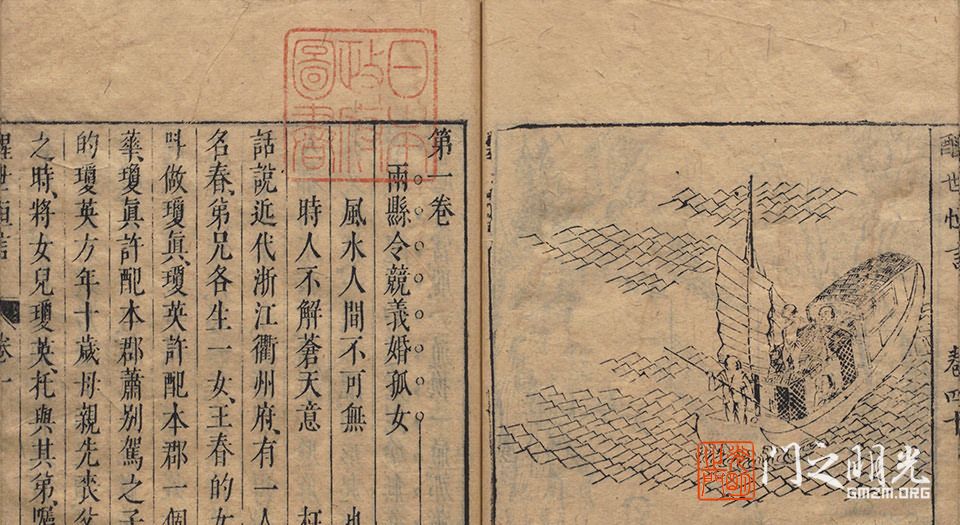 醒世恒言
卷四十
日本政府圖書
第一卷
兩縣令競義婚孤女
風水人間不可無 也
時人不解蒼天意 枉
話說近代浙江衢州府、有一人
名春、第兄各生一女、王春的女
呌做瓊眞、瓊英許配本郡一個
華、瓊眞許配本郡蕭別駕之子
的瓊英方年十歲母親先喪父
之時、將女兒瓊英、托與其第、囑
醒世恒言
卷一
光明之门
GMZM.ORG